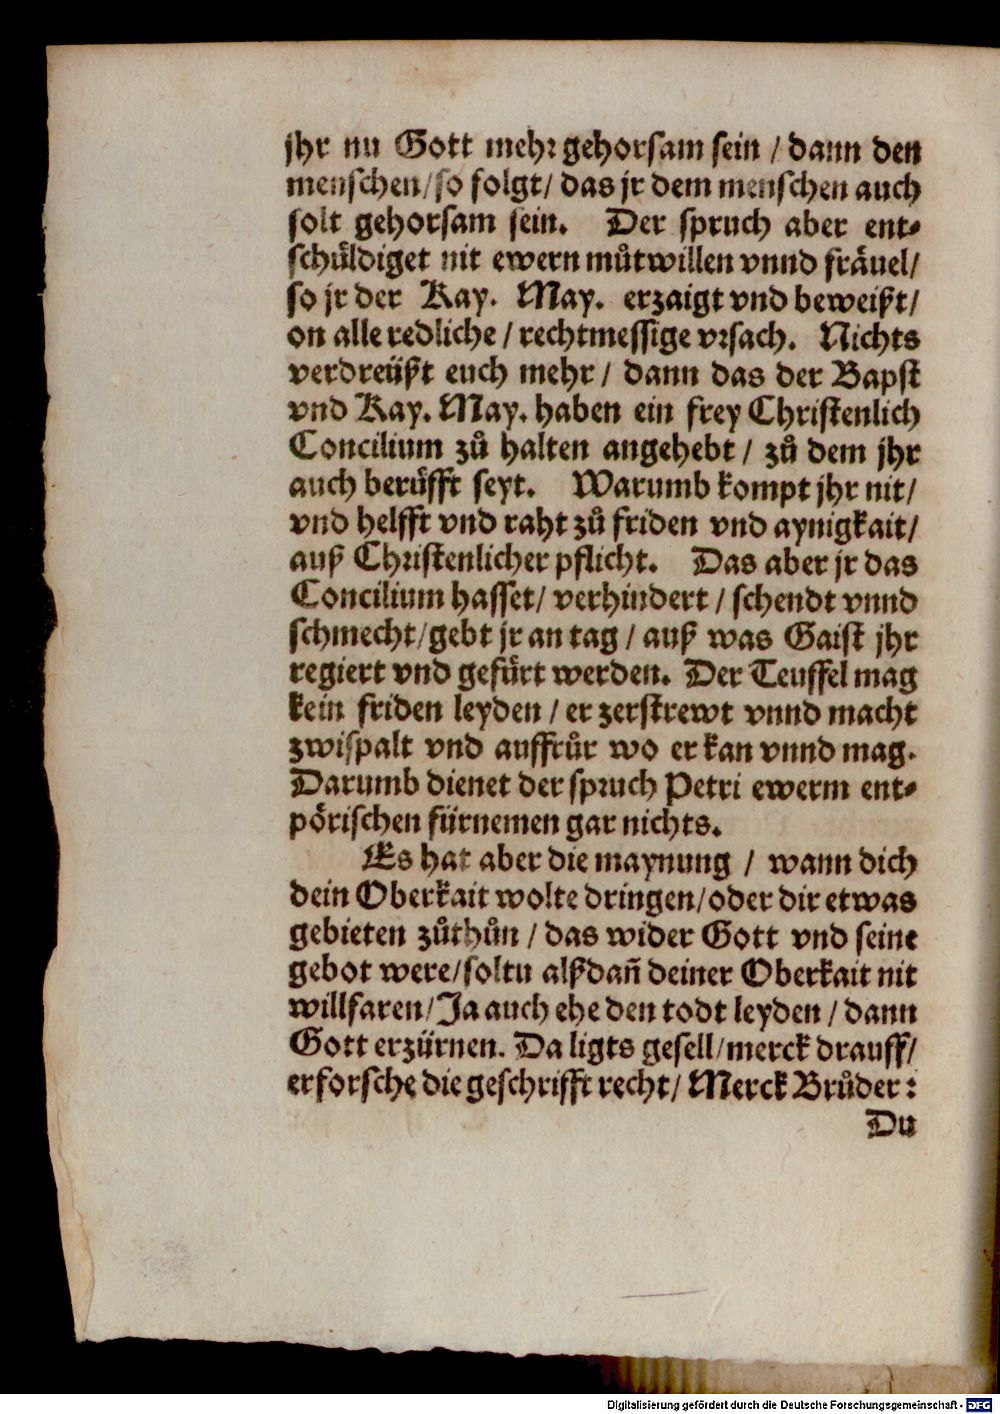 jhr nu Gott mehr gehorsam sein / dann den
menschen / so folgt / das jr dem menschen auch
solt gehorsam sein. Der spruch aber ent-
schůldiget nit ewern můtwillen vnnd fräuel /
so jr der Kay. May. erzaigt vnd beweißt /
on alle redliche / rechtmessige vrsach. Nichts
verdreüßt euch mehr / dann das der Bapst
vnd Kay. May. haben ein frey Christenlich
Concilium zů halten angehebt / zů dem jhr
auch berüfft seyt. Warumb kompt jhr nit /
vnd helfft vnd raht zů friden vnd aynigkait /
auß Christenlicher pflicht. Das aber jr das
Concilium hasset / verhindert / schendt vnnd
schmecht / gebt jr an tag / auß was Gaist jhr
regiert vnd gefürt werden. Der Teuffel mag
kein friden leyden / er zerstrewt vnnd macht
zwispalt vnd auffrůr wo er kan vnnd mag.
Darumb dienet der spruch Petri ewerm ent-
pörischen fürnemen gar nichts.
Es hat aber die maynung / wann dich
dein Oberkait wolte dringen / oder dir etwas
gebieten zůthůn / das wider Gott vnd seine
gebot were / soltu alßdañ deiner Oberkait nit
willfaren / Ja auch ehe den todt leyden / dann
Gott erzürnen. Da ligts gesell / merck drauff /
erforsche die geschrifft recht / Merck Brůder :
Du
Digitalisierung gefördert durch die Deutsche Forschungsgemeinschaft - DFG